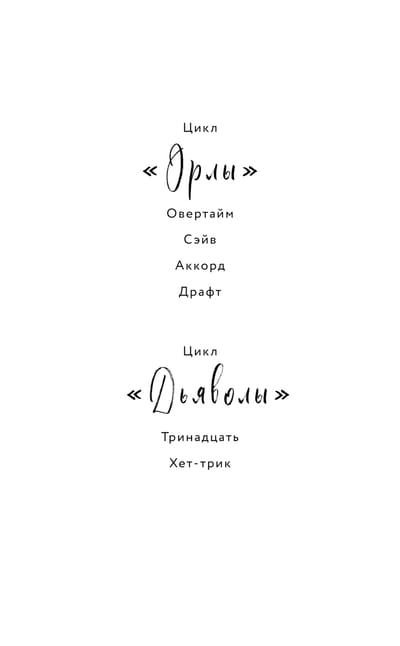 Цикл
«Орлы»
Овертайм
Сэйв
Аккорд
Драфт
Цикл
«Дьяволы»
Тринадцать
Хет-трик